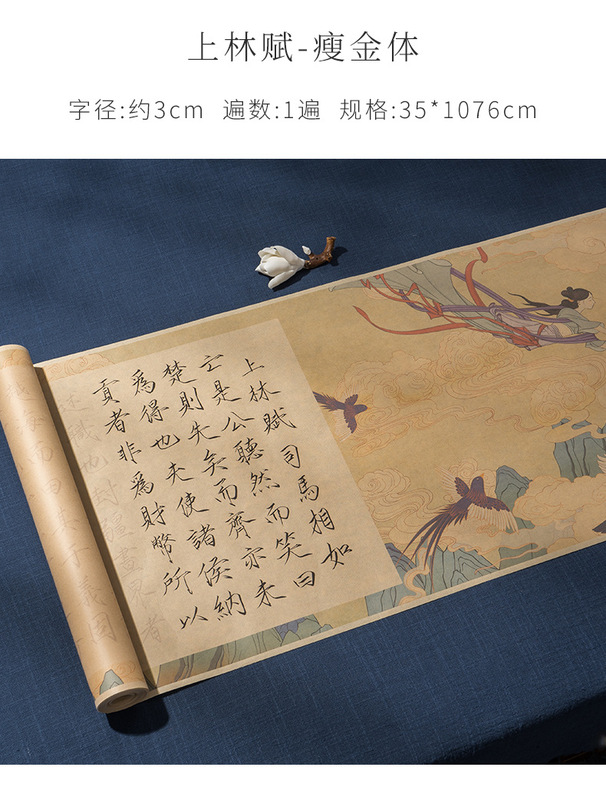 上林赋-瘦金体
字径:约3cm 遍数:1遍 规格:35*1076cm
上林賦司馬相如
亡是公聽然而笑曰
楚則失矣而齊亦未
為得也夫使諸侯納
貢者非為財幣所以